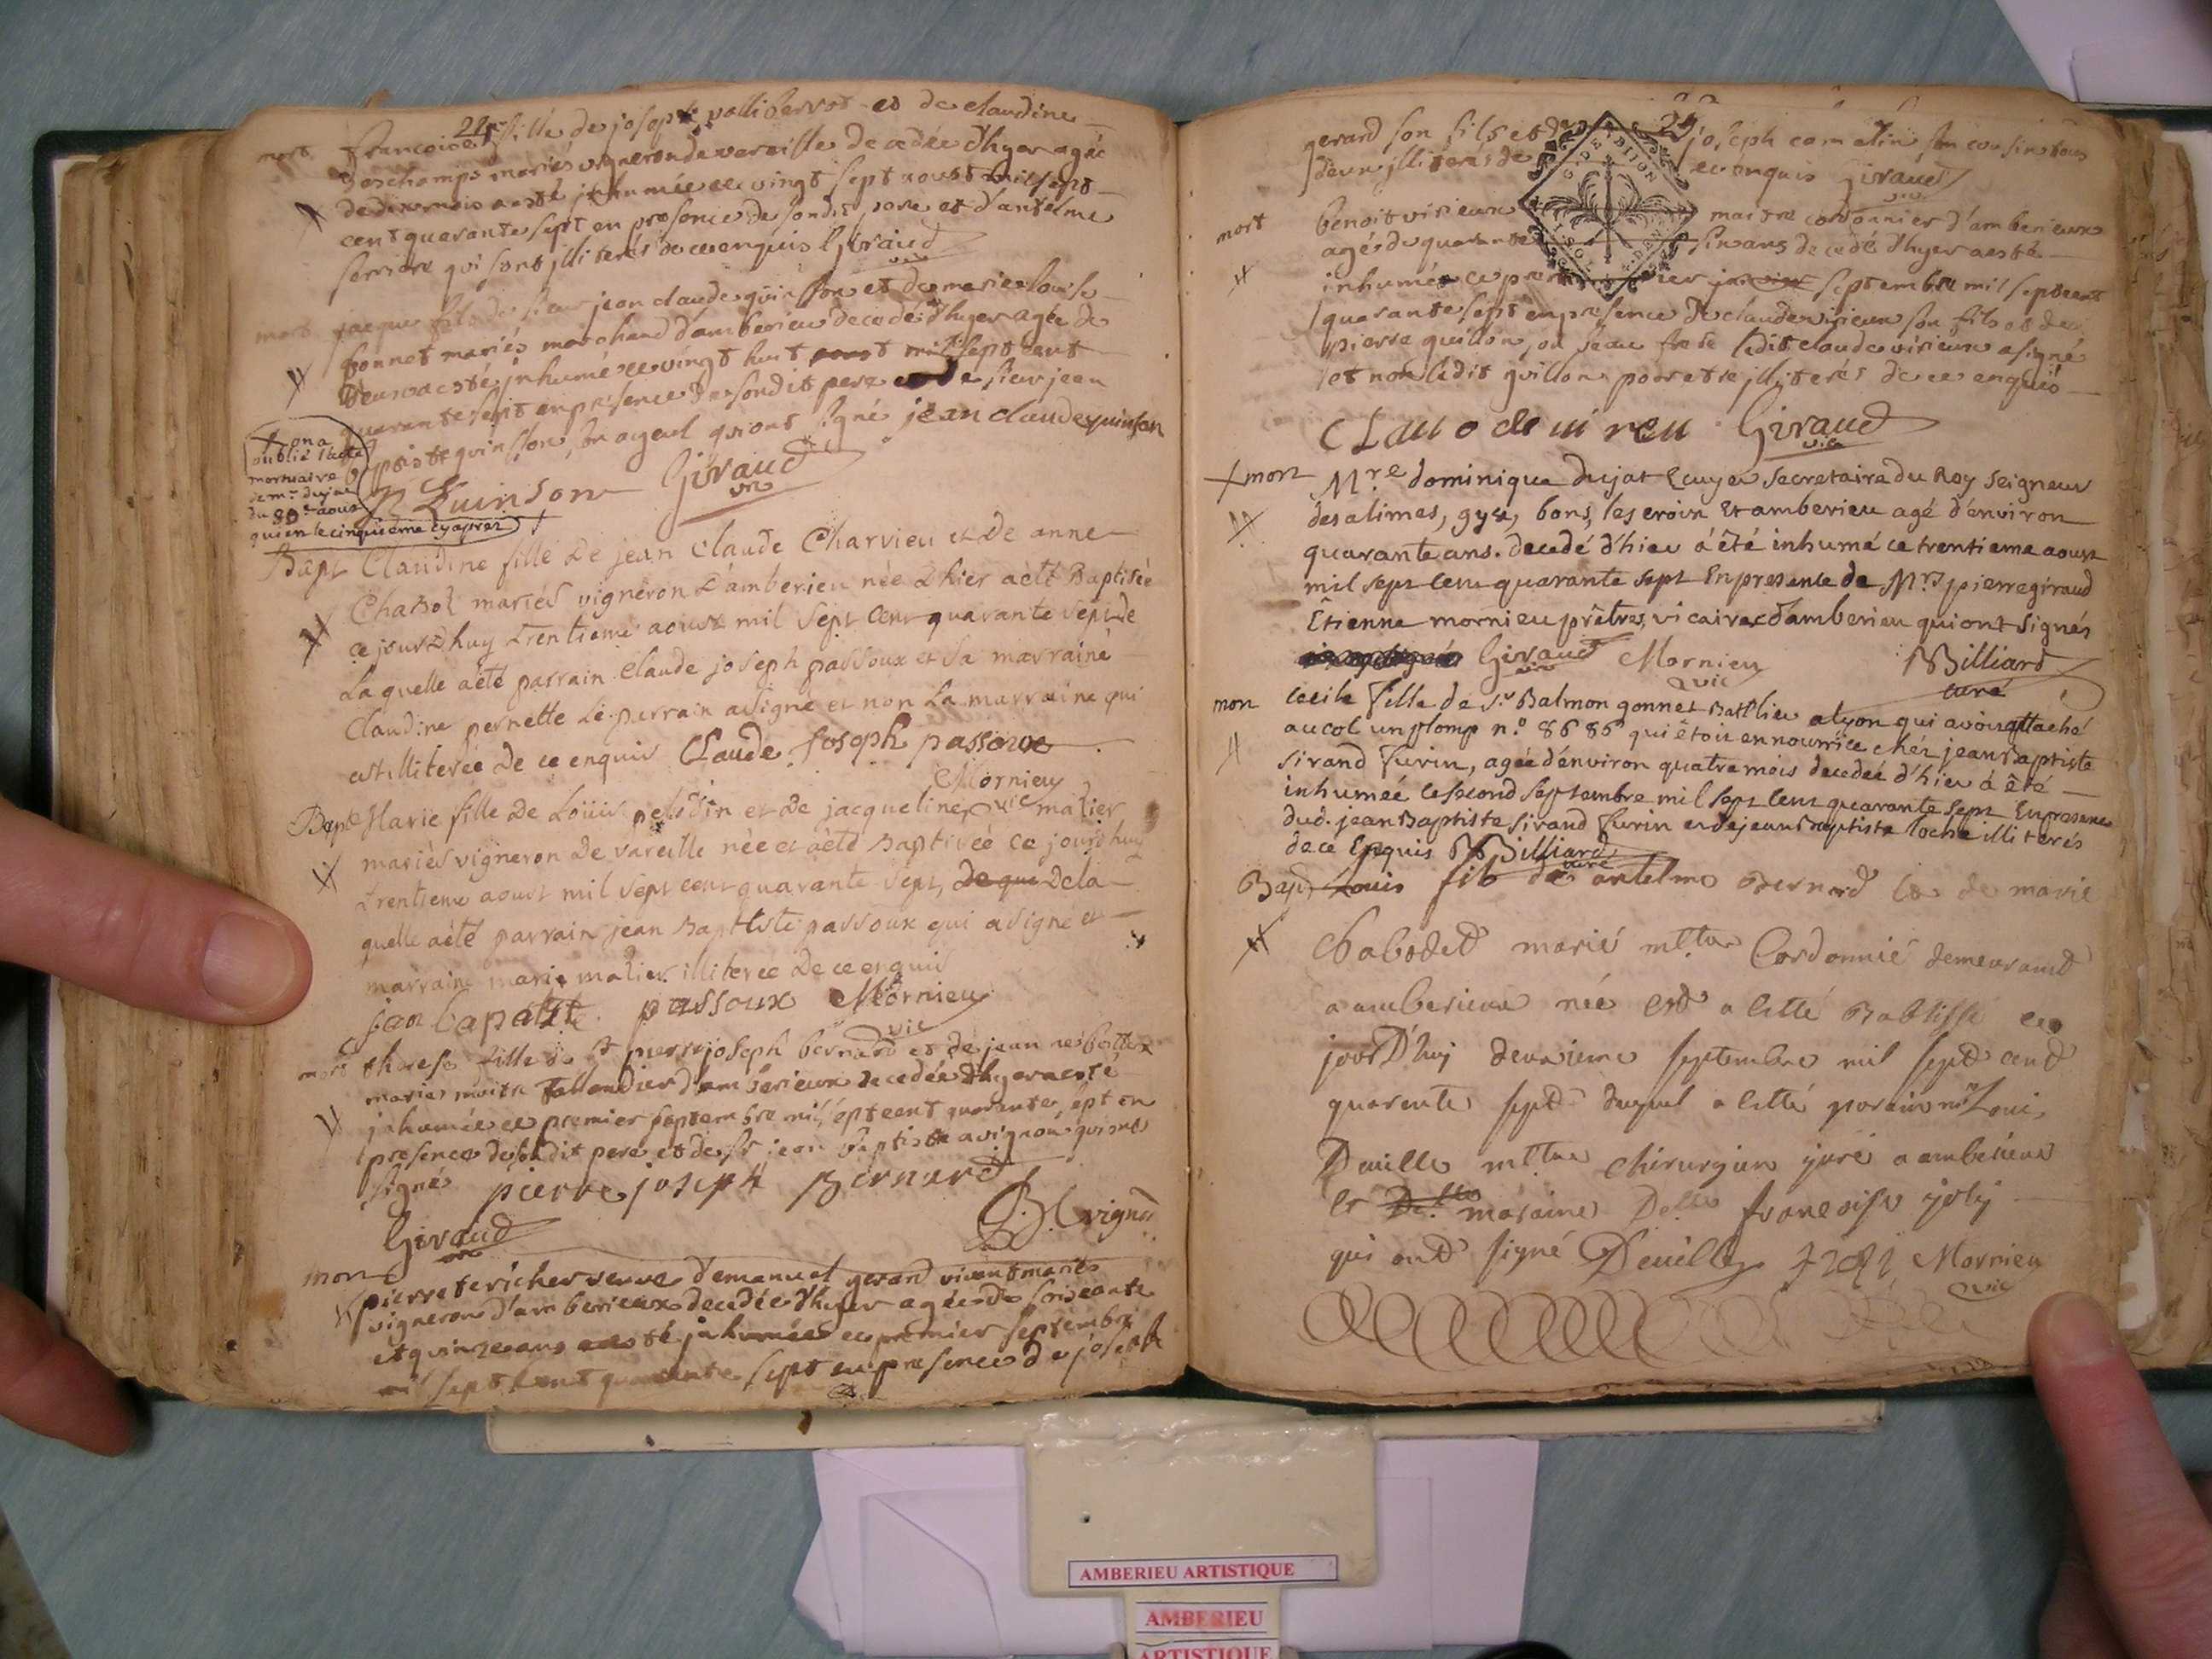 22
mort francoise fille de joseph vallicervot et de claudine
deschamps mariés vigneron de vareille decedée d'hyer agée
de dix mois a esté jnhumée ce vingt sept aoust mil sept
cent quarante sept en presence de sondit pere et d'antelme
serriere qui sont jlliterés de ce enquis Giraud
vic
mort jacque fils de sieur jean claude quinson et de marie louise
bonnet mariés marchand d'amberieu decedé d'hyer agé de
deux a esté jnhumé ce vingt huit aoust mil sept cent
quarante sept en presence de sondit pere et de sieur jean
baptiste quinson son ayeul qui ont signé jean claude quinson
Quinson Giraud
vic
on a
oublié l'acte
mortuaire
de mr. dujat
du 30e aoust
qui en le cinquieme cy apres
Bapt Claudine fille De jean Claude Charvieu et De anne
Chabot mariés vigneron D'amberieu née D'hier a êté Baptisée
ce jourd'huy trentieme aoust mil sept cent quarante sept de
Laquelle a êté parrain Claude joseph passoux et sa marraine
Claudine pernette Le parrain a signé et non La marraine qui
est illiterée De ce enquis Claude Joseph passoux
Mornieu
vic
Bapt Marie fille De Loüis pelodin et De jacqueline malier
mariés vigneron De vareille née et a êté Baptisée ce jourd'huy
trentieme aoust mil sept cent quarante sept, de que De la
quelle a êté parrain jean Baptiste passoux qui a signé et
marraine marie malier illiterée De ce enquis
jan bapatite passoux Mornieu
vic
mort therese fille de sr pierre joseph bernard et de jean ne bottex
mariés maitre tallandier d'amberieux decedée d'hyer a esté
jnhumée ce premier septembre mil sept cent quarante sept en
presence de sondit pere et de sr jean baptiste avignon qui ont
signé pierre joseph Bernard
Giraud B Avignon
vic
mort pierrete richer veuve d'emanuel gerard vivant mariés
vigneron d'amberieux decedée d'hyer agée de soixante
et quinze ans a esté jnhumée ce premier septembre
mil sept cent quarante sept en presence de joseph
23
gerard son fils et de joseph cometin son cousin tous
deux jlliterés de ce enquis Giraud
vic
GE DE DIJON
mort benoit virieux maitre cordonnier d'amberieux
agé de quarante six ans decedé d'hyer a esté
inhumé ce premier janvier septembre mil sept cent
quarante sept en presence de claude virieux son fils et de
pierre quillon son beau frere ledit claude virieux a signé
et non ledit quillon pour etre jlliterés de ce enquis
Claude uireu Giraud
vic
mort Mre dominique dujat Ecuyer Secretaire du Roy Seigneur
des alimes, gyx, bons, les croix Et amberieu agé d'environ
quarante ans. decedé d'hier a êté inhumé ce trentieme aoust
mil sept cent quarante sept En presence de Mrs pierre giraud
Etienne mornieu prêtres, vicaires d'amberieu qui ont signés
Giraud Mornieu Billiard
vic vic curé
mort Cecile fille de Sr Balmon gonnet Battlier a lyon qui avoit attaché
au col un plomp n.o 8686 qui êtoit en nourrice chéz jean Baptiste
sirand Turin, agée d'environ quatre mois decedée d'hier a êté
inhumée le second septembre mil sept cent quarante sept En presence
dud. jean Baptiste sirand Turin et de jean Baptiste loche illiterés
de ce Enquis Billiard
curé
Bapt Louis fils de antelme Bernard et de marie
Chabodet marié mttre Cordonnié demeurant
a amberieux née est a letté Babtissé ce
jour D'huj deuxieme septembre mil sept cent
quarente sept duquel a letté parain mr Loui
Deuille mttre chirurgien juré a amberieux
et Delle maraine Delle francoise joly
qui ont signé Deuille Mornieu
vic
AMBERIEU ARTISTIQUE
AMBERIEU
ARTISTIQUE